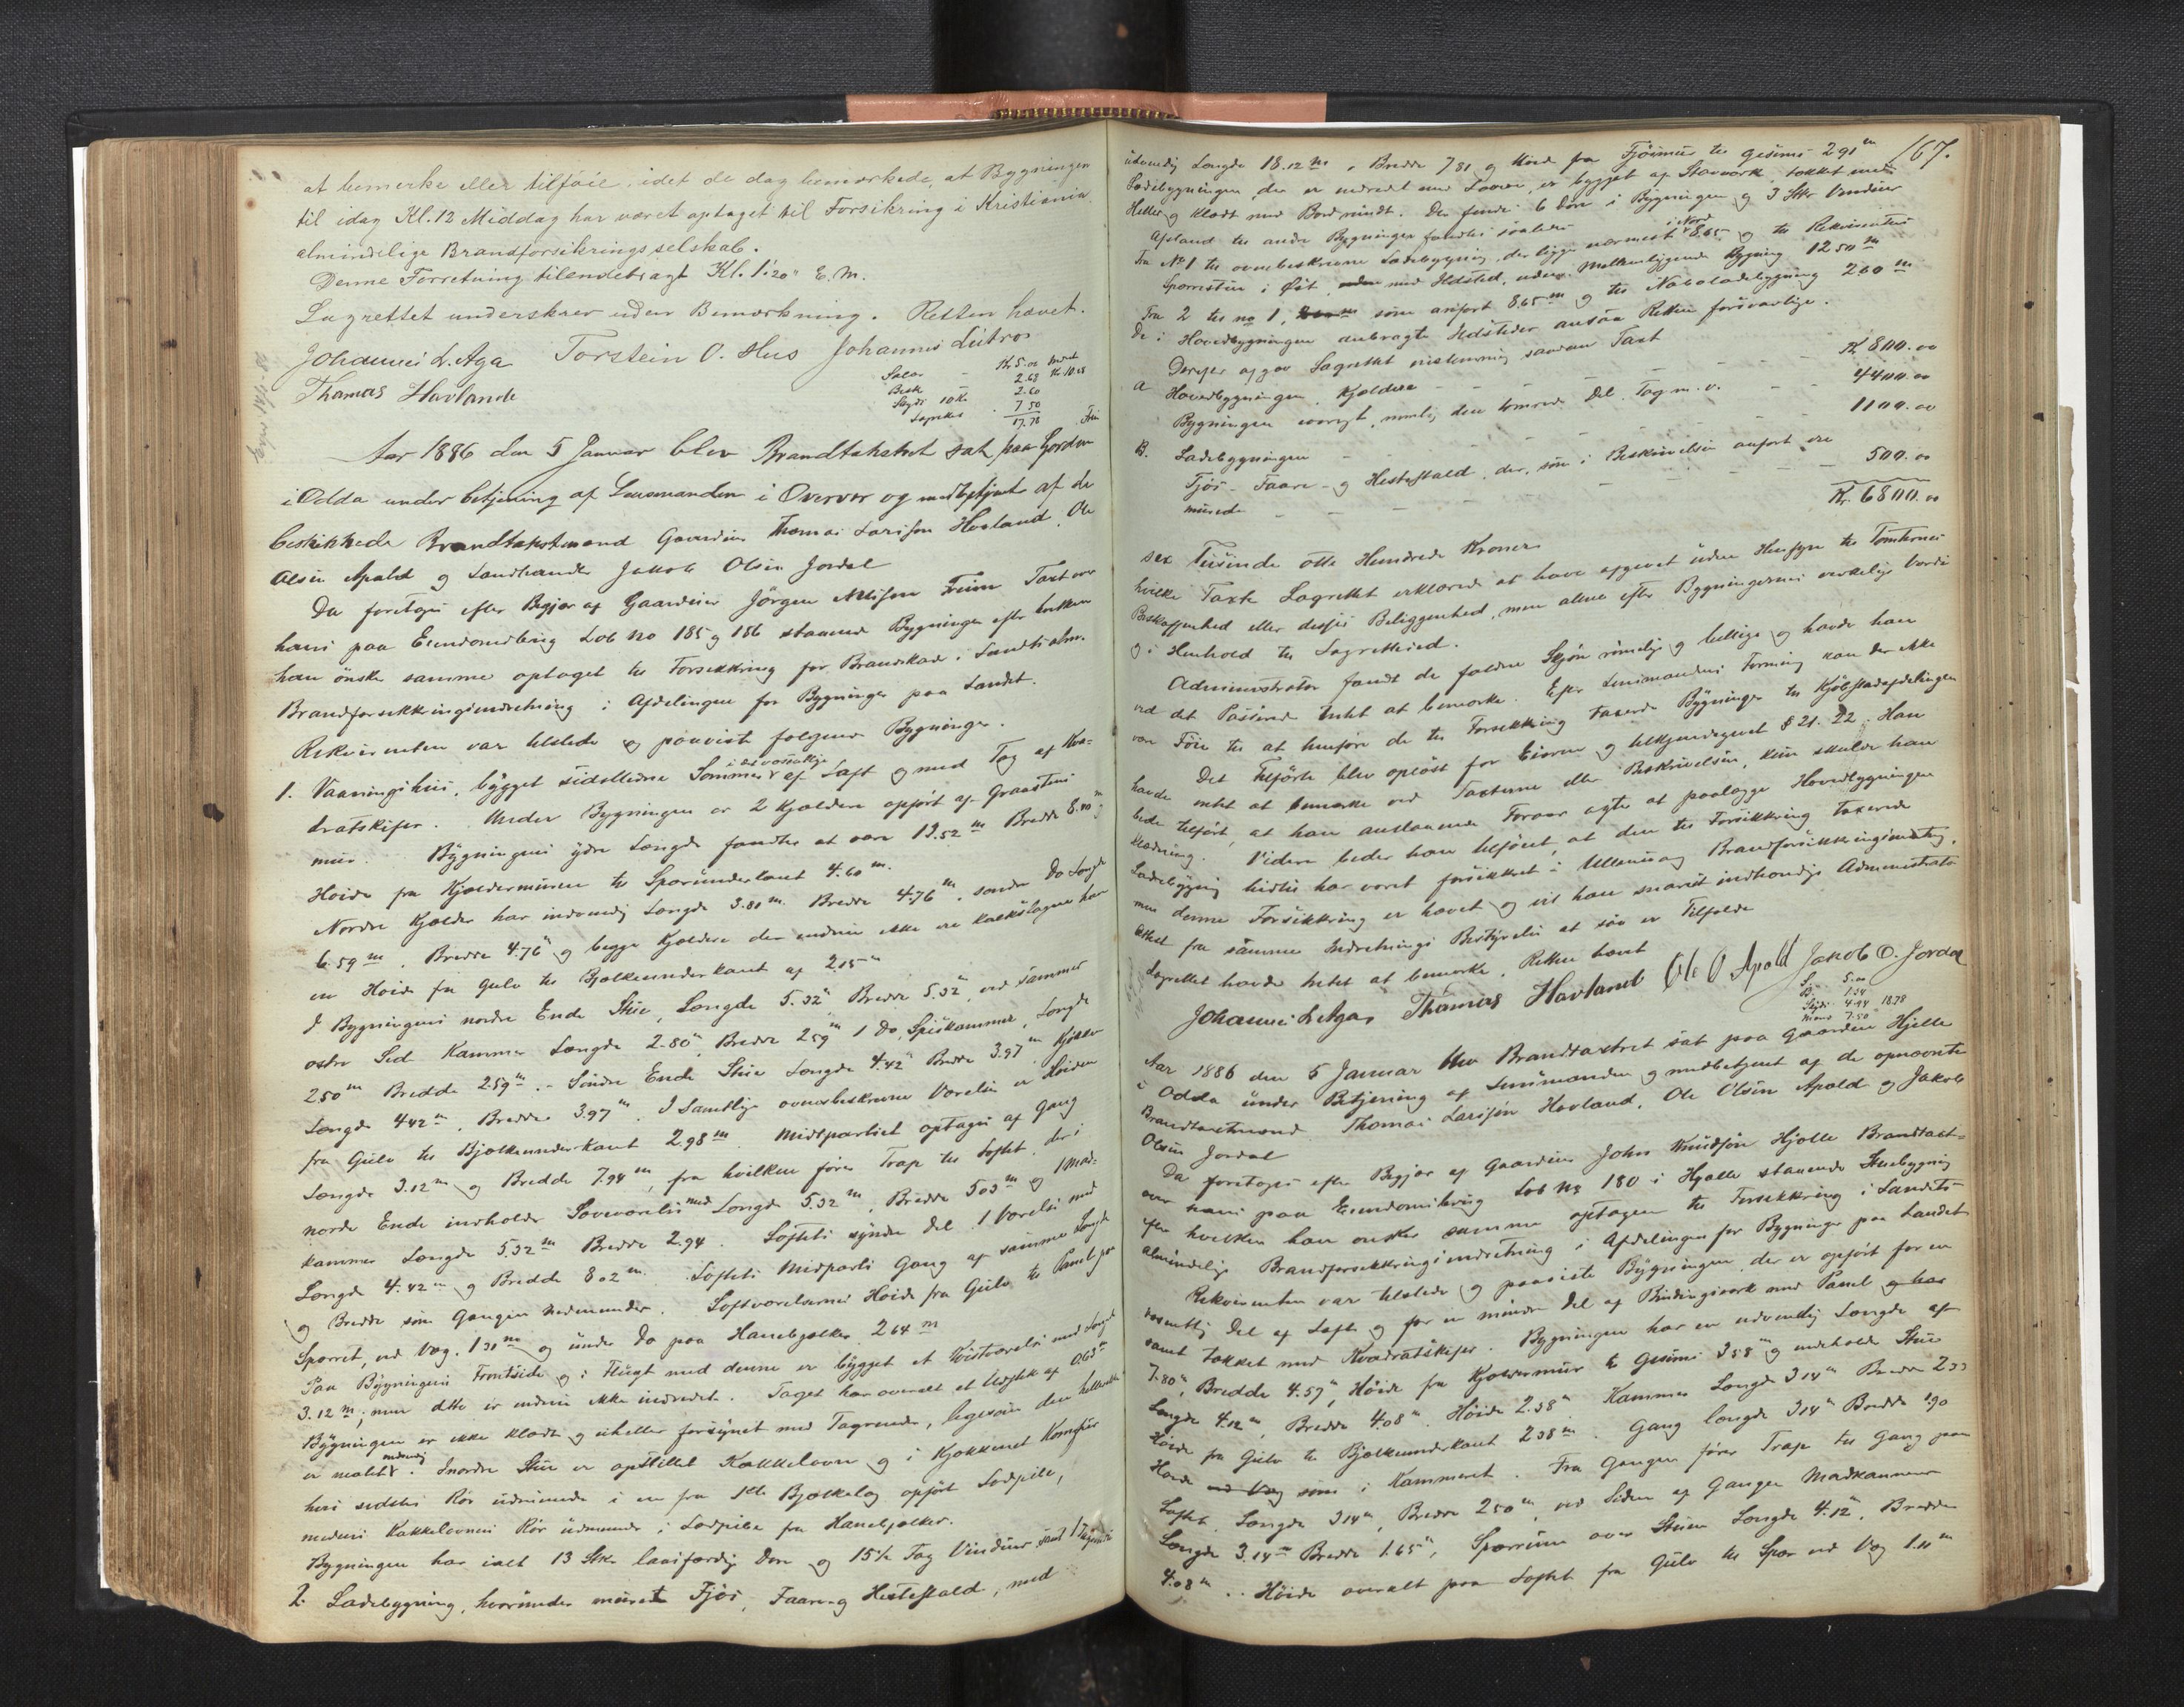 at bemerke eller tilføie, idet de dog bemærkede, at Bygningen
til idag Kl. 12 Middag har været optaget til Forsikring i Kristiania
almindelige Brandforsikringsselskab.
Denne Forretning tilendebragt Kl. 1 20 E. M.
Lagrettet underskrev uden Bemærkning. Retten hævet.
Johannes L. Aga Torstein O. Hus Johannes Lutro
Thomas Havland
Kr 5.00
2.68
Skyds 10 K 2.60
Lagrettet 7.50
17.78
Aar 1886 den 5 Januar blev Brandtakstret sat paa Gorden
i Odda under betjening af Lensmanden i og medbetjent af de
beskikkede Brandtakstmænd Gaardmr Thomas Larssen Hovland, Ole
Olsen Apald og Landhandler Jakob Olsen Jordal
Da foretoges efter Begjær af Gaardeier Jörgen Freim Taxt over
hans paa Eiendommen Löb No 185 og 186 staaende Bygninger efter hvilken
han önsker samme optaget til Forsikkring for Brandskade i Landets alm.
Brandforsikkringsindretning i Afdelingen for Bygninger paa Landet.
Rekvirenten var tilstede og paaviste følgende Bygninger.
1. Vaaningshus, bygget sidstledne Sommer i det væsentlige af Laft og med Tag af Kva-
dratskifer. Under Bygningen er 2 Kjældere opført af Graastens
mur. Bygningens ydre Længde fandtes at være 13.52 m Bredde 8.40 m
Høide fra Kjældermuren til Sparunderkant 4.60 m.
Nordre Kjælder har indvendig Længde 3.80 m. Bredde 4.76 m, søndre Do Længde
6.59 m, Bredde 4.76 m og begge Kjældere der endnu ikke ere kalkslagne har
en Høide fra Gulv til Bjælkeunderkant af 2.15 m
I Bygningens nordre Ende Stue, Længde 5.32 m Bredde 5.32 m, ved sammes
østre Sid Kammer Længde 2.80 m, Bredde 2.59 m 1 Do, Spiskammer, Længde
2.50 m Bredde 2.59 m. - Søndre Ende Stue Længde 4.42 m Bredde 3.97 m, Kjøkken
Længde 4.42 m, Bredde 3.97 m. I Samtlige ovenbeskrevne Værelser er Høiden
fra Gulv til Bjælkeunderkant 2.98 m. Midtpartiet optages af Gang
Længde 3.12 m og Bredde 7.94 m, fra hvilken fører Trap til Loftet, der i
nordre Ende indholder Soveværelse med Længde 5.32 m, Bredde 5.03 m og 1 Mad-
kammer Længde 5.32 m Bredde 2.94. Loftets syndre Del 1 Værelse med
Længde 4.42 m og Bredde 8.02 m. Loftets Midparti Gang af samme Længde
og Bredde som Gangen nedenunder. Loftværelsernes Høide fra Gulv til Panel paa
Sparret, ved Væg. 1.30 m og under Do paa Hanebjælker 2.64 m
Paa Bygningens Frontside og i Flugt med denne er bygget et Kvistværelse med Længde
3.12 m, men dette er endnu ikke indredet. Taget har overalt et Udstik af 0.63 m
Bygningen er ikke klædt og ei heller forsynet med Tagrender, ligesom den hellerikke
er malet indvendig. I nordre Stue er opstillet Kakkelovn og i Kjøkkenet Komfur
hvis sidstes Rør udmunde i en fra 1ste Bjælkelag opført Lodpibe,
medens Kakkelovnens Rør udmunde i Lodpibe fra Hanebjælker.
Bygningen har ialt 13 Stk laasfærdige Døre og 15½ Fag Vinduer samt 1
2. Ladebygning, hvorunder muret Fjøs, Faare og Hestestald, med
167.
udvendig Længde 18.12 m, Bredde 7.81 og Høide fra Fjøsmur til Gesims 2.91 m
Ladebygningen, der er indredt med Laave, er bygget af Stavværk, tækket med
Heller og klædt med Bord rundt. Der findes 6 Døre i Bygningen og 3 Stk Vinduer
Afstand til andre Bygninger fandtes saaledes
Fra No 1 til ovenbeskrevne Ladebygning, der ligger nærmest i Nord 8.65 og til Rekvirentens
i Øst, med Ildsted, uden Mellemliggende Bygning 12.50 m
Fra 2 til no 1, som anført 8.65 m og til Naboladebygning 2.60 m
De i Hovedbygningen anbragte Ildsteder ansaa Retten forsvarlige.
Derefter afgav Lagrettet enstemmig saadan Taxt
a Hovedbygningen, Kjældere - - - - Kr 800.00
Bygningen iøvrigt, nemlig den tømrede Del, Tag m. v. - - 4400.00
B. Ladebygningen - - - - - 1100.00
Fjøs- Faare- og Hestestald, der, som i Beskrivelsen anført ere
murede - - - - - 500.00
Kr. 6800.00
sex Tusinde otte Hundrede Kroner
hvilke Taxte Lagrettet erklærede at have afgivet uden Hensyn til Tomternes
Beskaffenhed eller deres Beliggenhed, men alene efter Bygningernes verkelige Værdi
og i Henhold til Lagrettesed.
Administrator fandt de faldne Skjøn rimelige og billige og havde han
ved det Passerede Intet at bemærke. Efter Lensmandens Formening kan der ikke
være Føie til at henføre de til Forsikkring taxerede Bygninger til Kjøbstadafdelingen
Det Tilførte blev oplæst for Eieren og tilkjendegivet § 21. 22. Han
havde intet at bemærke ved Taxterne eller Beskrivelsen, kun skulde han
bede tilført, at han anstaaende Foraar agter at paalægge Hovedbygningen
Klædning. Videre beder han tilføiet, at den til Forsikkring taxerede
Ladebygning hidtil har været forsikkret i Ullensvang Brandforsikkringsindretning,
men denne Forsikkring er hævet og vil han snarest indhændige Administrator
Attest fra samme Indretnings Bestyrelse at saa er Tilfælde
Lagrettet havde Intet at bemærke. Retten hævet
Johannes L Aga Thomas Havland Ole O Apold Jakob O. Jordal
S. 5.00
B. 1.34
Skyds 4.94 18.78
Mænd 7.50
Aar 1886 den 5 Januar blev Brandtaxtret sat paa Gaarden Hjelle
i Odda under Betjening af Lensmanden og medbetjent af de opnævnte
Brandtaxtmænd Thomas Larssen Hovland, Ole Olsen Apald og Jakob
Olsen Jordal
Da foretoges efter Begjær af Gaardeier John Knudsøn Hjelle Brandtaxt-
over hans paa Eiendommen Löb No 180 i Hjelle staaende Stuebygning
efter hvilken han ønsker samme optagen til Forsikkring i Landets
almindelige Brandforsikkringsindretning i Afdelingen for Bygninger paa Landet
Rekvirenten var tilstede og paaviste Bygningen, der er opført for en
væsentlig Del af Laft og for en mindre Del af Bindingsværk med Panel og har
samt tækket med Kvadratskifer. Bygningen har en udvendig Længde af
7.80 m, Bredde 4.57 m, Høide fra Kjældermur til Gesims 3.58 m og indeholder Stue
Længde 4.12 m, Bredde 4.08 m. Høide 2.38 m Kammer Længde 3.14 m Bredde 2.33
Høide fra Gulv til Bjælkeunderkant 2.38 m. Gang længde 3.14 m Bredde 1.90
Høide som i Kammeret. Fra Gangen fører Trap til Gang paa
Loftet Længde 3.14 m, Bredde 2.50 m, ved Siden af Gangen Madkammer
Længde 3.14 m Bredde 1.65 m, Sparrum over Stuen Længde 4.12 m, Bredde
4.08 m. Høide overalt paa Loftet fra Gulv til Spær ved Væg 1.11 m